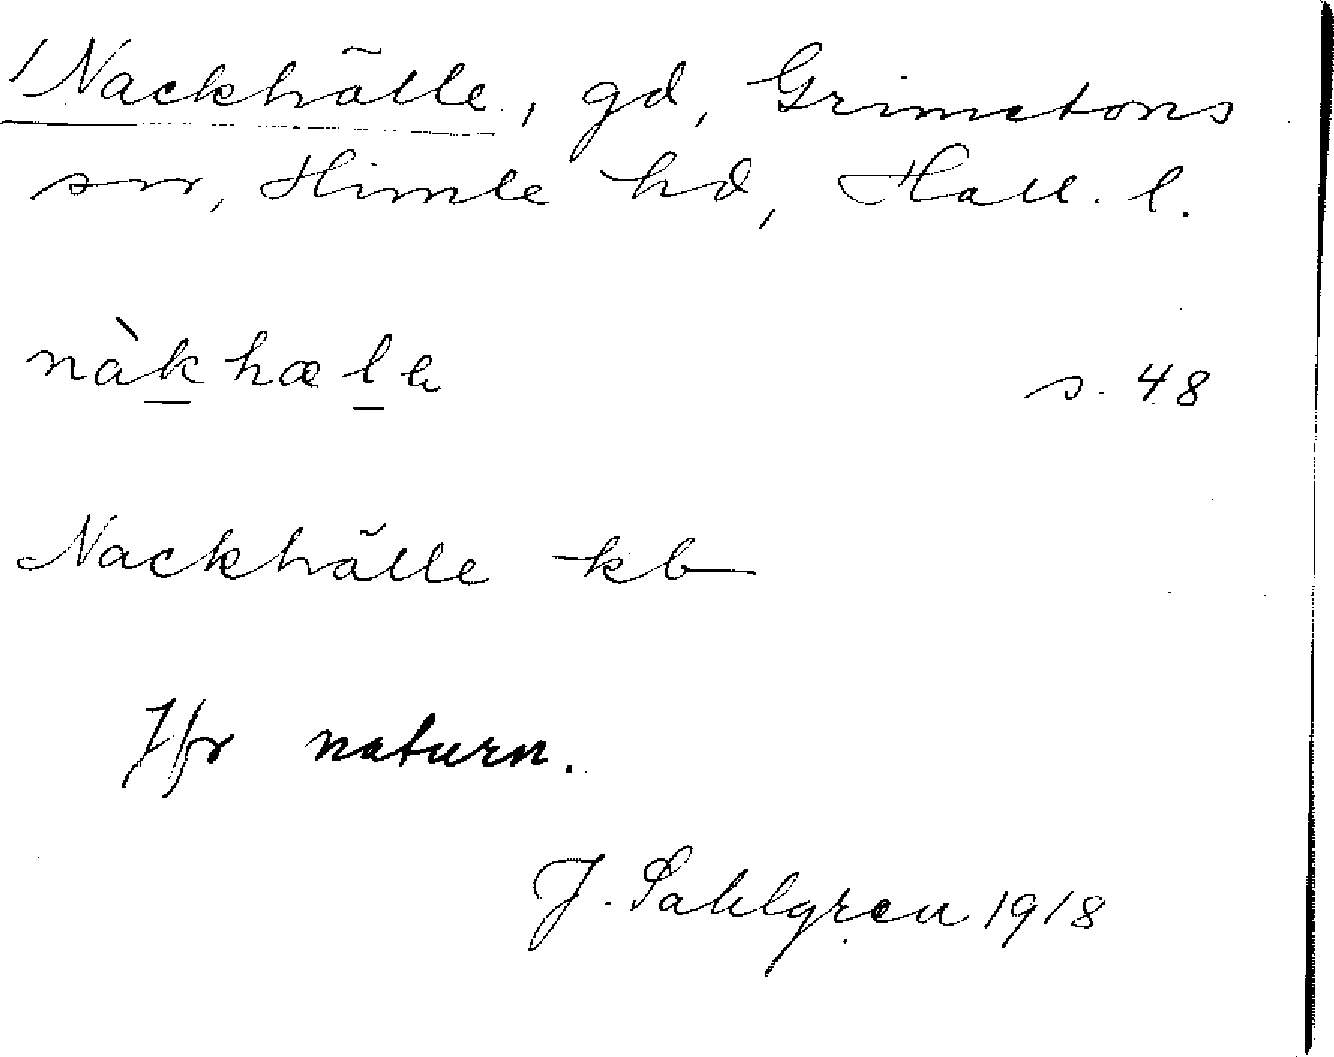 1 Nackhälle, gd, Grimetons
sn, Himle hd, Hall. l.
nàkhæle s. 48
Nackhälle kb
Jfr naturn.
J. Sahlgren 1918